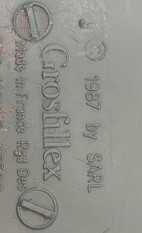 © 1987 by SARL
Grosfillex
Made in France Rgd Des